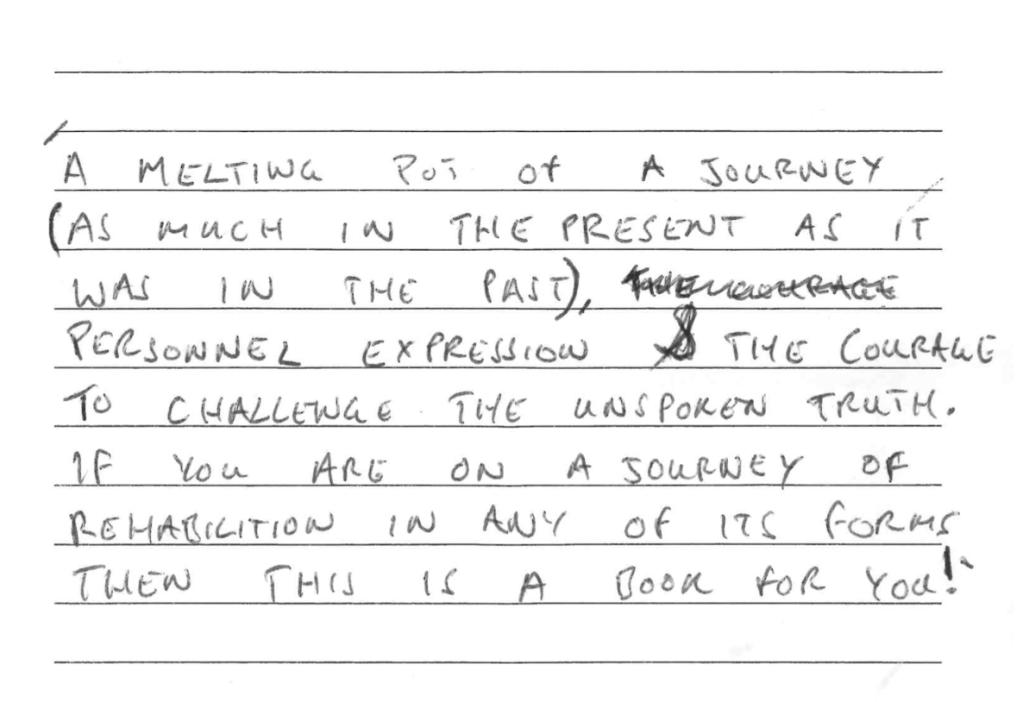 A MELTING POT OF A JOURNEY
(AS MUCH IN THE PRESENT AS IT
WAS IN THE PAST), THE COURAGE
PERSONNEL EXPRESSION & THE COURAGE
TO CHALLENGE THE UNSPOKEN TRUTH.
IF YOU ARE ON A JOURNEY OF
REHABILITION IN ANY OF ITS FORMS
THEN THIS IS A BOOK FOR YOU!